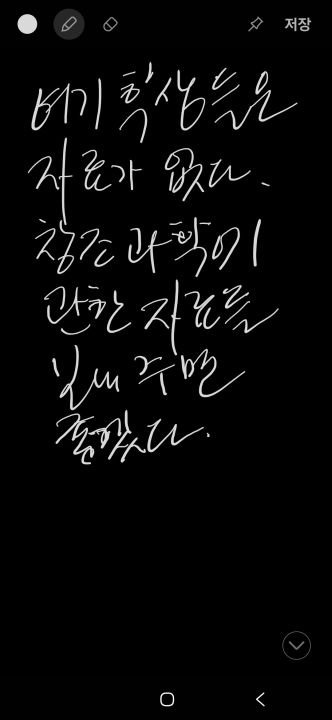 저장
여기 학생들은
자료가 없다.
창조과학에
관한 자료들
보내 주면
좋겠다.